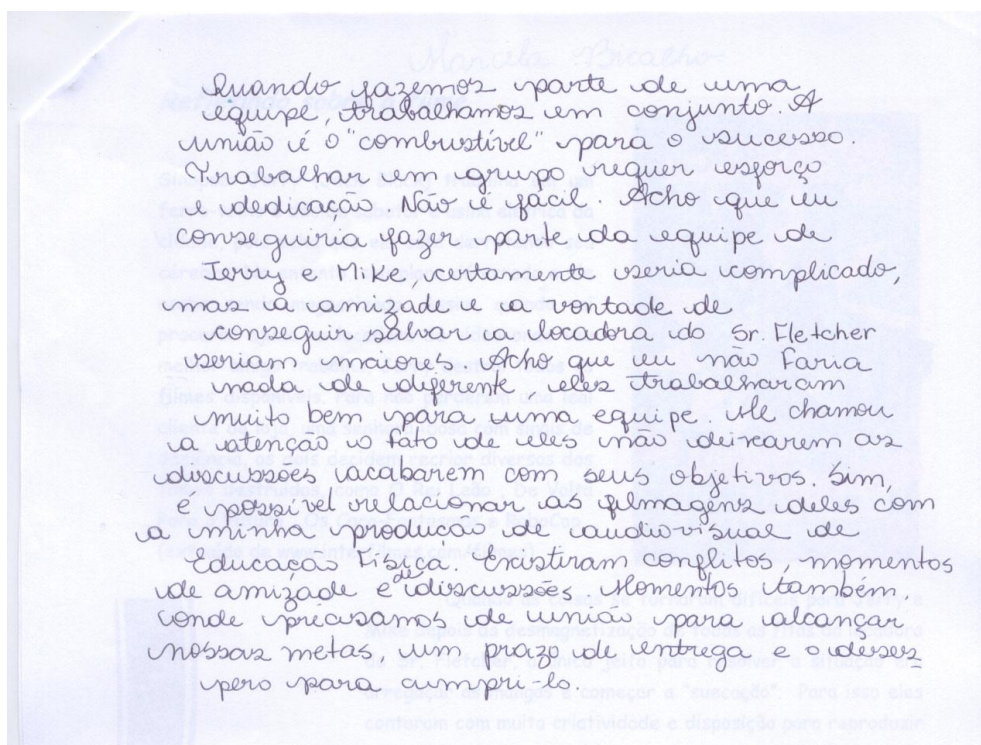 Marcela Bicalho
Quando fazemos parte de uma
equipe, trabalhamos em conjunto. A
união é o "combustível" para o sucesso.
Trabalhar em grupo requer esforço
e dedicação. Não é fácil. Acho que eu
conseguiria fazer parte da equipe de
Jerry e Mike, certamente seria complicado,
mas a amizade e a vontade de
conseguir salvar a locadora do Sr. Fletcher
seriam maiores. Acho que eu não faria
nada de diferente, eles trabalharam
muito bem para uma equipe. Me chamou
a atenção o fato de eles não deixarem as
discussões acabarem com seus objetivos. Sim,
é possível relacionar as filmagens deles com
a minha produção de audiovisual de
Educação Física. Existiram conflitos, momentos
de amizade e de discussões. Momentos também,
onde precisamos de união para alcançar
nossas metas, um prazo de entrega e o deses
pero para cumpri-lo.